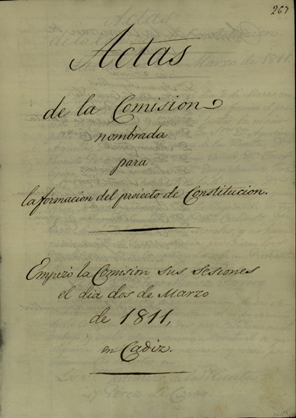 267
Actas
de la Comision
nombrada
para
la formacion del proiecto de Constitucion.
Empezó la Comision sus sesiones
el dia dos de Marzo
de 1811,
en Cadiz.